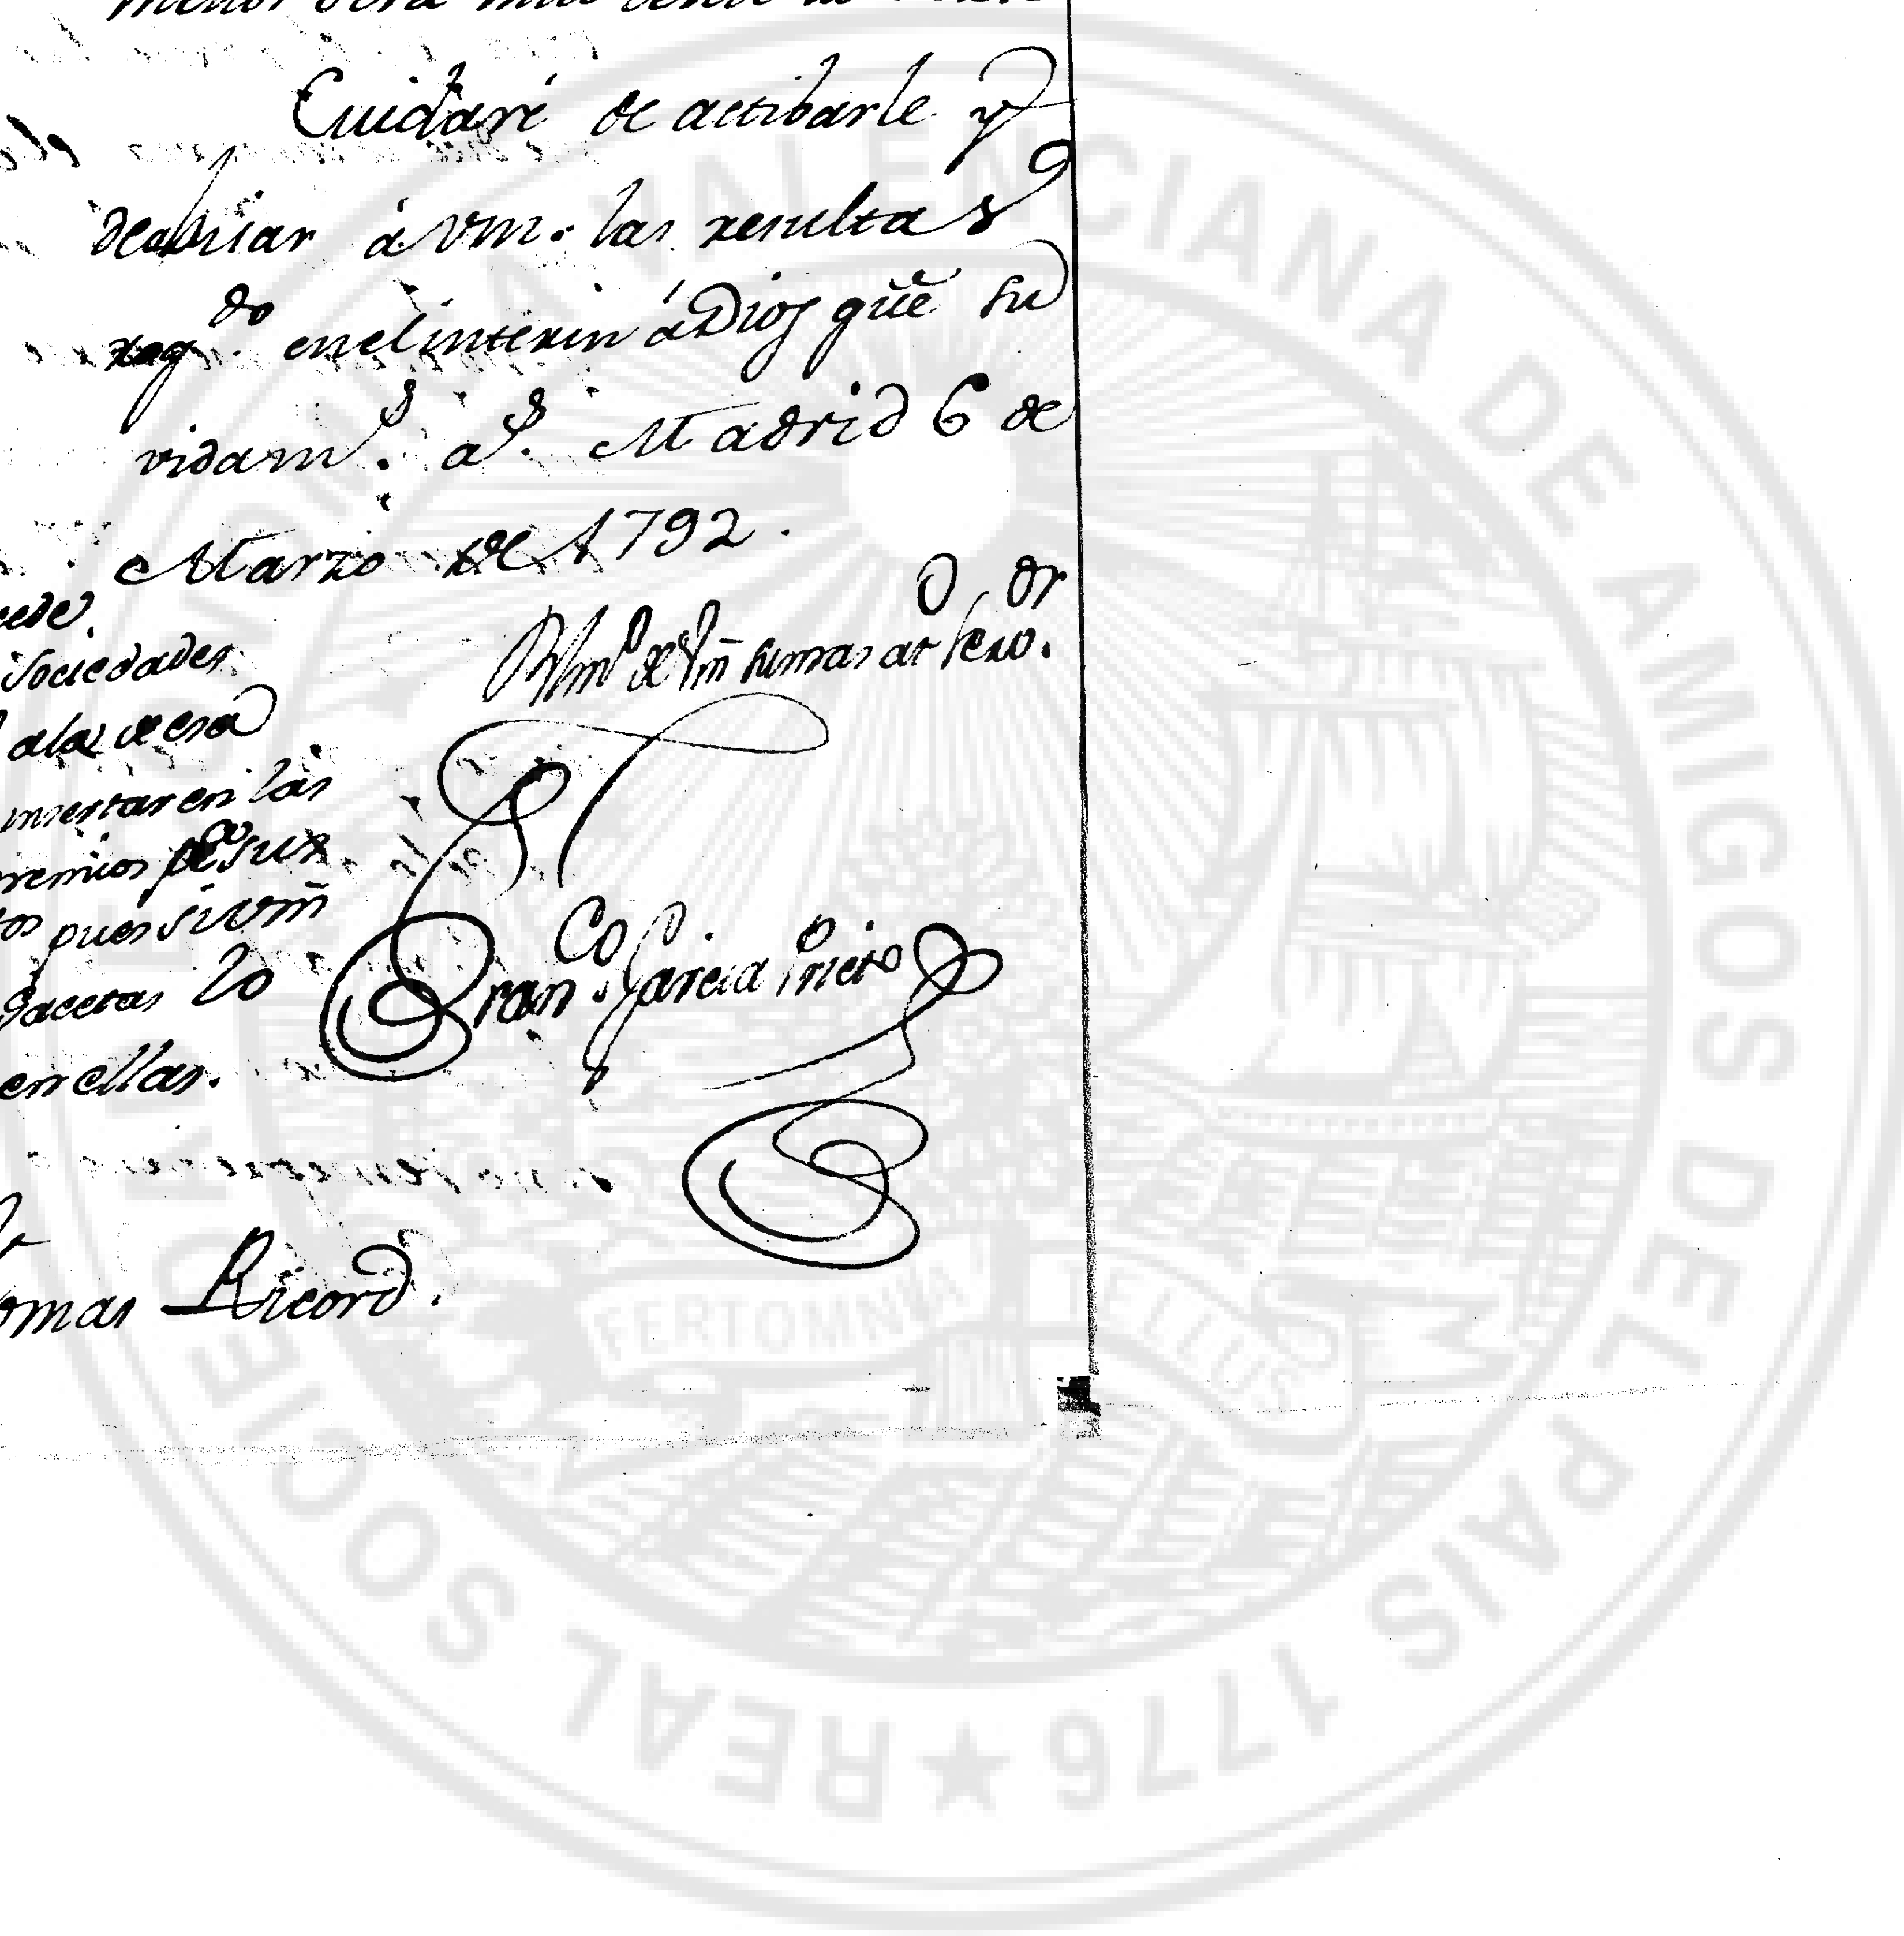 Cuidaré de actibarle y
de abisar á Vm. las resultas
rog.do en el interin á Dios güe su
vida m.s a.s Madrid 6 de
Marzo de 1792.
BLm.o de Vm̃ su mas at.o ser.or
Fran.co Garcia Prieto
Sociedades
ala de esa
insertar en las
premios de sus
pues si Vm̃
Gacetas lo
en ellas.
omas Ricord.
REAL SOCIEDAD ECONOMICA VALENCIANA DE AMIGOS DEL PAIS 1776